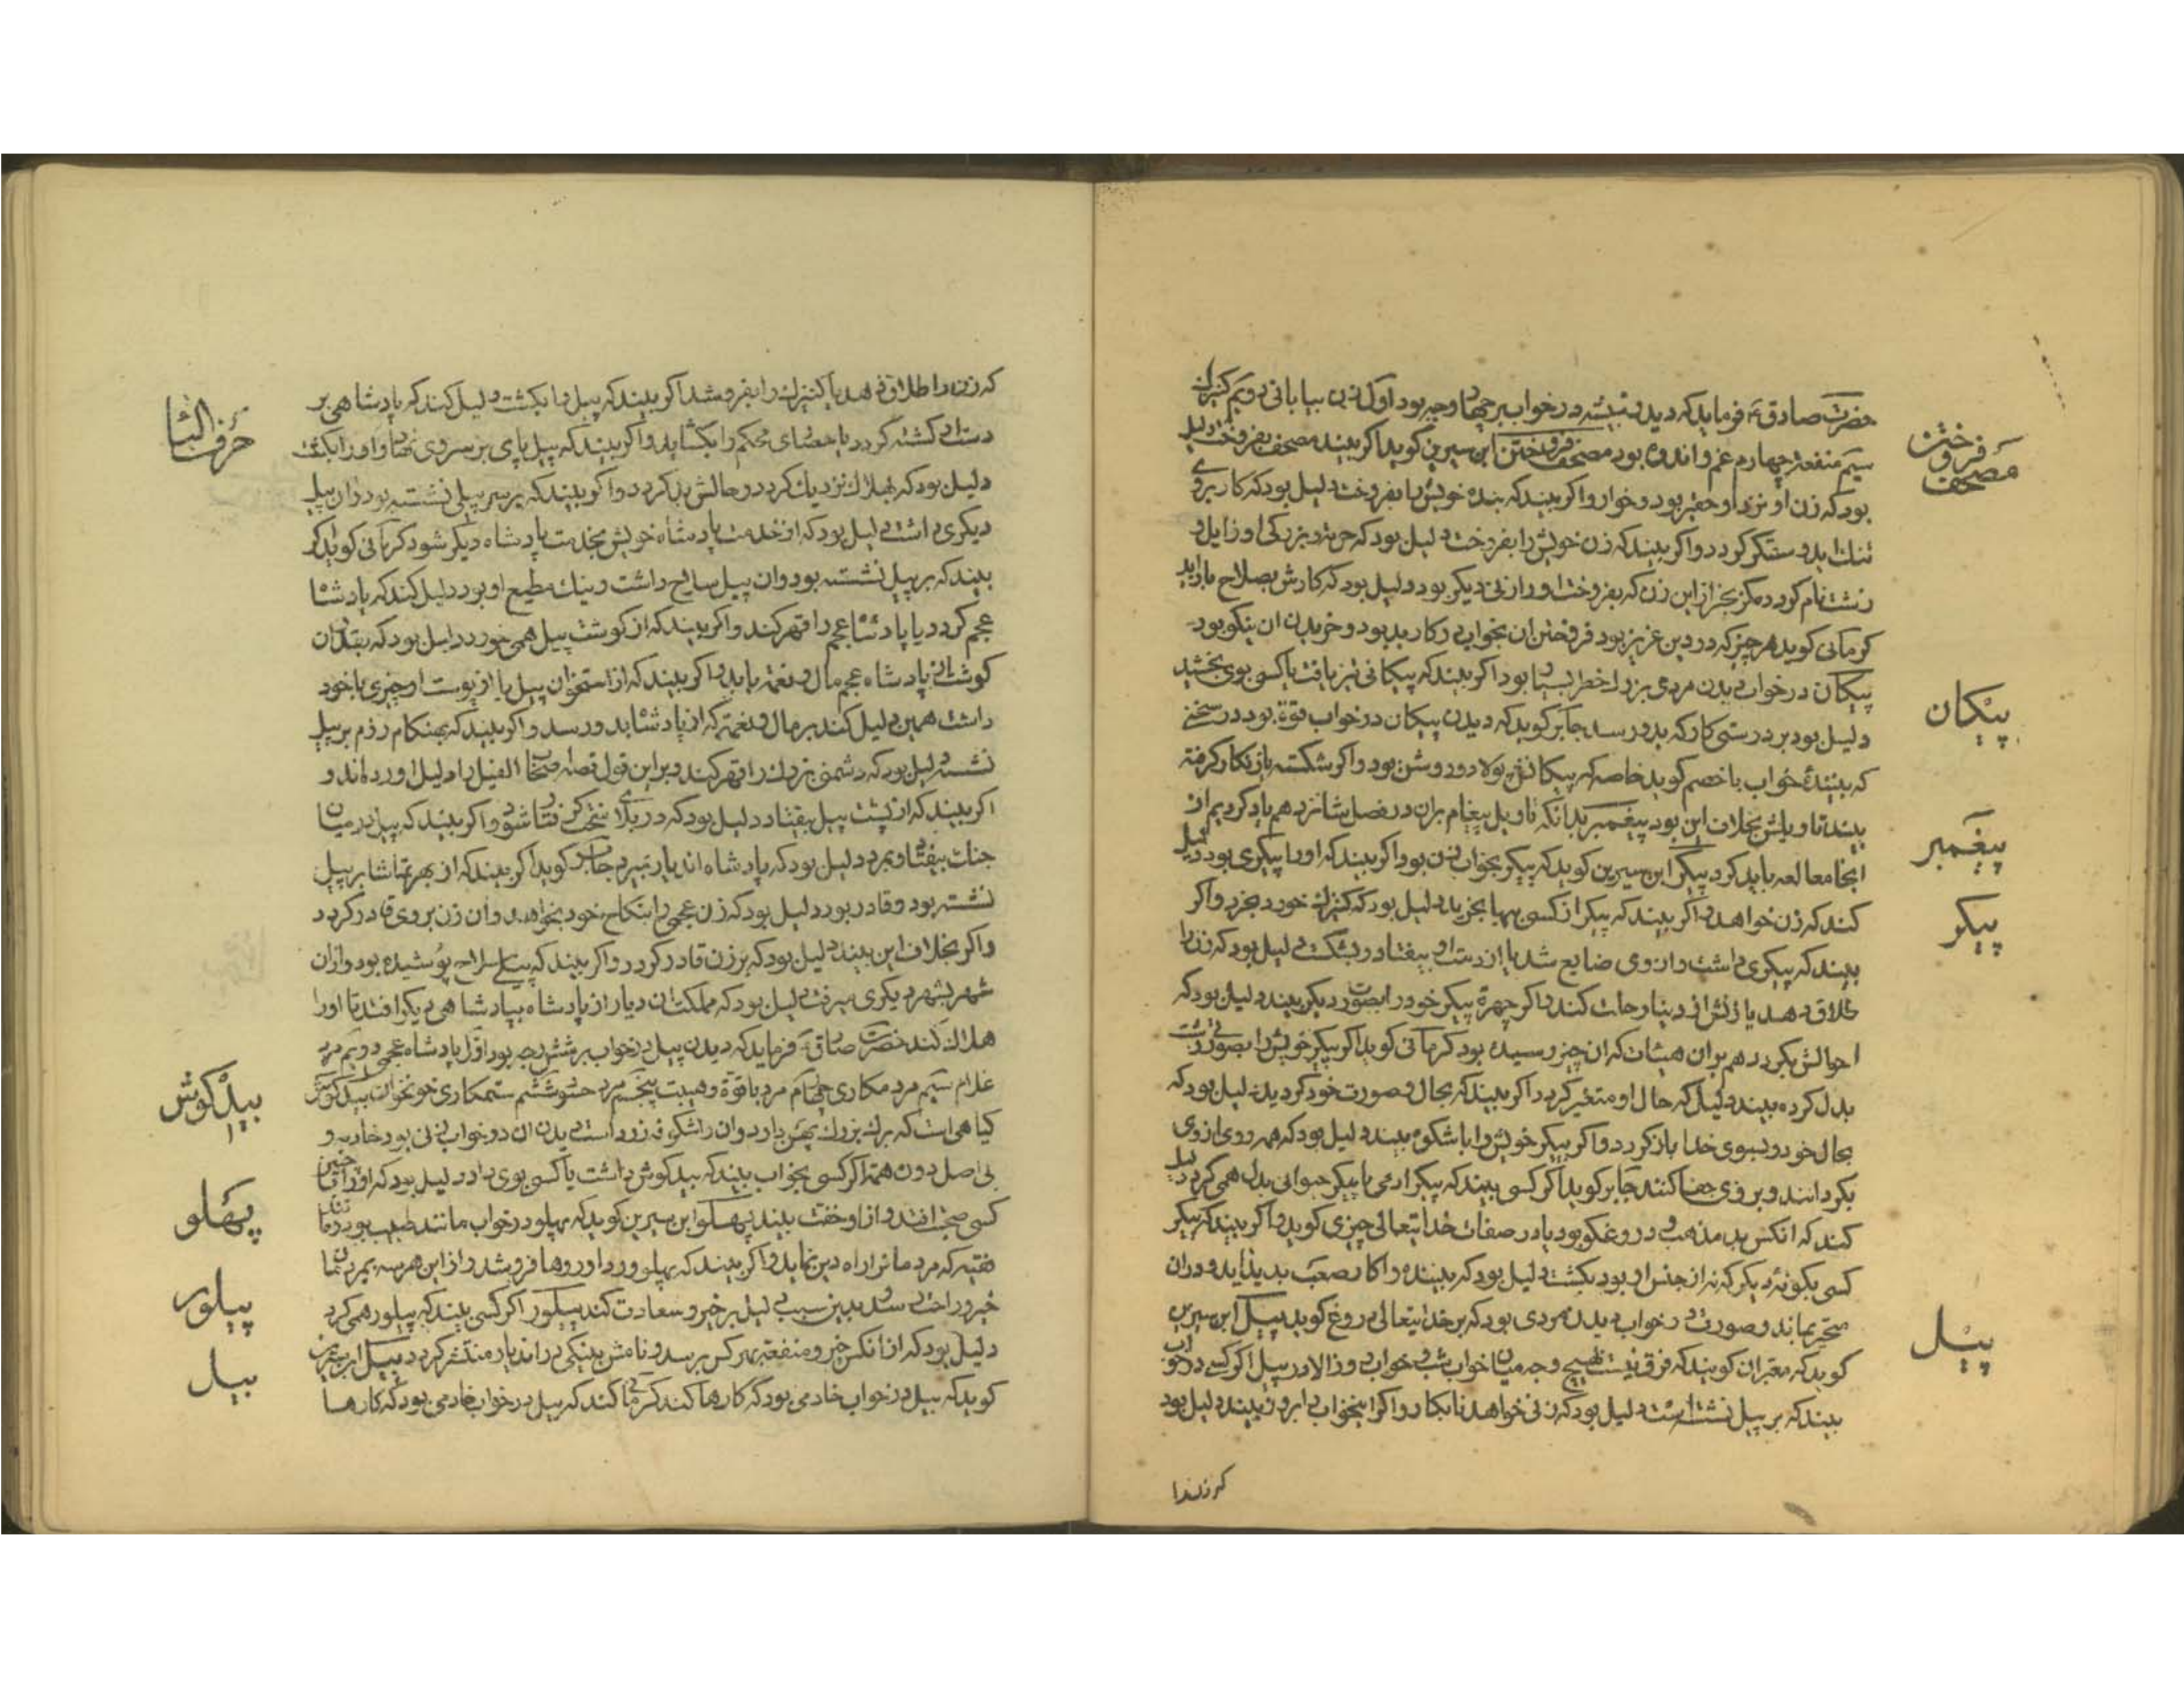 حضرت صادق ع فرماید که دیدن تیشه در خواب بر چهار وجه بود اول زن بیابانی دویم کنیزان
سیم منفعة چهارم غم و اندوه بود مصحف فروختن ابن سیرین کوید اکر بیند مصحف بفروخت دلیل
بود که زن او نزد او حقیر بود و خوار و اکر بیند که بنده خویش را بفروخت دلیل بود که کار بروی
تنک اید و ستکر کردد و اکر بیند که زن خویش را بفروخت دلیل بود که حرمة و بزرکی او زایل و
زشت نام کردد مکر بجز از این زن که بفروخت او را زنی دیکر بود دلیل بود که کارش بصلاح باز اید
کرمانی کوید هر چیز که در دین عزیز بود فروختن ان بخواب در کار بد بود و خریدن ان نیکو بود
پیکان
پیکان در خواب دیدن مردی بزرا خطر بسیار بود اکر بیند که پیکانی تیز یافت یا کسی بوی بخشید
دلیل بود بر درستی کار که بدو رسد جابر کوید که دیدن پیکان در خواب قوة بود در سخن
که بینندهٔ خواب با خصم کوید خاصه که پیکانش پولاد و روشن بود و اکر شکسته یا زنکار کرفته
بیند تاویلش بخلاف این بود پیغمبر بدانکه تاویل پیغام بران در فصل شانزدهم یاد کردیم از
پیغمبر
انجا معالعه باید کرد پیکر ابن سیرین کوید که پیکر بخواب زن بود اکر بیند که او را پیکری بود دلیل
پیکر
کند که زن خواهد و اکر بیند که پیکر از کسی بها بخرید دلیل بود که کنیزک خود بخرد و اکر
بیند که پیکری داشت و از وی ضایع شد یا از دست او بیفتاد و بشکست دلیل بود که زن را
طلاق دهد یا زنش از دنیا رحلت کند و اکر چهرهٔ پیکر خود را بصورت دیکر بیند دلیل بود که
احوالش بکردد هم بران هیئات که ان چیز رسیده بود کرمانی کوید اکر پیکر خویش را بصورتی زشت
بدل کرده بیند دلیل که حال او متغیر کردد اکر بیند که بحال و صورت خود کردید دلیل بود که
بحال خود و بسوی خدا باز کردد و اکر پیکر خویش را با شکوه بیند دلیل بود که همه روی از وی
بکردانند و بر وی جفا کنند جابر کوید اکر کسی بیند که پیکر ادمی با پیکر حیوانی بدل همی کردد دلیل
کند که انکس بد مذهب و دروغکو بود یا در صفات خدایتعالی چیزی کوید و اکر بیند که پیکر
کسی بکونهٔ دیکر که نه از جنس او بود بکشت دلیل بود که بیننده را کار صعب پدید اید و دران
متحیر بماند و صورت در خواب دیدن مردی بود که بر خدایتعالی دروغ کوید پیل ابن سیرین
پیل
کوید که معبران کویند که فرق نیست هیچ وجه میان خواب شب و خواب روز الا در پیل اکر کسی در خواب
بیند که بر پیل نشسته است دلیل بود که زنی خواهد نابکار و اکر اینخواب را بروز بیند دلیل بود
که زنرا
که زن را طلاق دهد یا کنیزک را بفروشد اکر بیند که پیل را بکشت دلیل کند که پادشاهی بر
حرف الثا
دست او کشته کردد یا حصاری محکم را بکشاید و اکر بیند که پیل پای بر سر وی نهاد و او را بکشت
دلیل بود که بهلاک نزدیک کردد و حالش بد کردد و اکر بیند که بر سر پیلی نشسته بود و ان پیل
دیکری داشت دلیل بود که از خدمت پادشاه خویش بخدمت پادشاه دیکر شود کرمانی کوید اکر
بیند که بر پیل نشسته بود و ان پیل سلاح داشت و نیک مطیع او بود دلیل کند که پادشاه
عجم کردد یا پادشاه عجم را قهر کند و اکر بیند که از کوشت پیل همی خورد دلیل بود که بقدر ان
کوشت از پادشاه عجم مال و نعمة یابد و اکر بیند که از استخوان پیل یا از پوست او چیزی با خود
داشت همین دلیل کند بر مال و نعمة که از پادشاه بدو رسد و اکر بیند که بهنکام رزم بر پیل
نشسته دلیل بود که دشمن بزرک را قهر کند و بر این قول قصهٔ اصحاب الفیل را دلیل اورده اند و
اکر بیند که از پشت پیل بیفتاد دلیل بود که در بلای سخت کرفتار شود و اکر بیند که پیل در میان
جنک بیفتاد و بمرد دلیل بود که پادشاه اندیار بمیرد جابر کوید اکر بیند که از بهر تماشا بر پیل
نشسته بود و قادر بود دلیل بود که زن عجمی را بنکاح خود بخواهد و ان زن بروی قادر کردد
و اکر بخلاف این بیند دلیل بود که بر زن قادر کردد و اکر بیند که پیلی سلاح پوشیده بود و از ان
شهر بشهر دیکری میرفت دلیل بود که مملکت ان دیار از پادشاه بپادشاهی دیکر افتد تا او را
هلاک کند حضرت صادق ع فرماید که دیدن پیل در خواب بر شش وجه بود اول پادشاه عجمی دویم مرد
غلام سیم مرد مکاری چهارم مرد با قوة و هیبت پنجم مرد حسود ششم ستمکاری خونخوار پیلکوش
پیلکوش
کیاهی است که برک بزرک پهن دارد و ان را شکوفه زرد است دیدن ان در خواب زنی بود خادمه و
بی اصل دون همة اکر کسی بخواب بیند که پیلکوش داشت یا کسی بوی داد دلیل بود که او را با چنین
کسی صحبت افتد و از او خفت بیند پهلو ابن سیرین کوید که پهلو در خواب مانند طبیب بود و مانند
پهلو
فقیه که مردمانرا راه دین نماید و اکر بیند که پهلو ورد او روها فروشد و از این هر سه بمردمان
خیر و راحت رسد بدین سبب دلیل بر خیر و سعادت کند پیلور اکر کسی بیند که پیلور همی کرد
پیلور
دلیل بود که از انکس خیر و منفعة بهر کس برسد و نامش بنیکی در اندیار منتشر کردد بیل ابن سیرین
بیل
کوید که بیل در خواب خادمی بود که کارها کند کرمانی کند که بیل در خواب خادمی بود که کارها